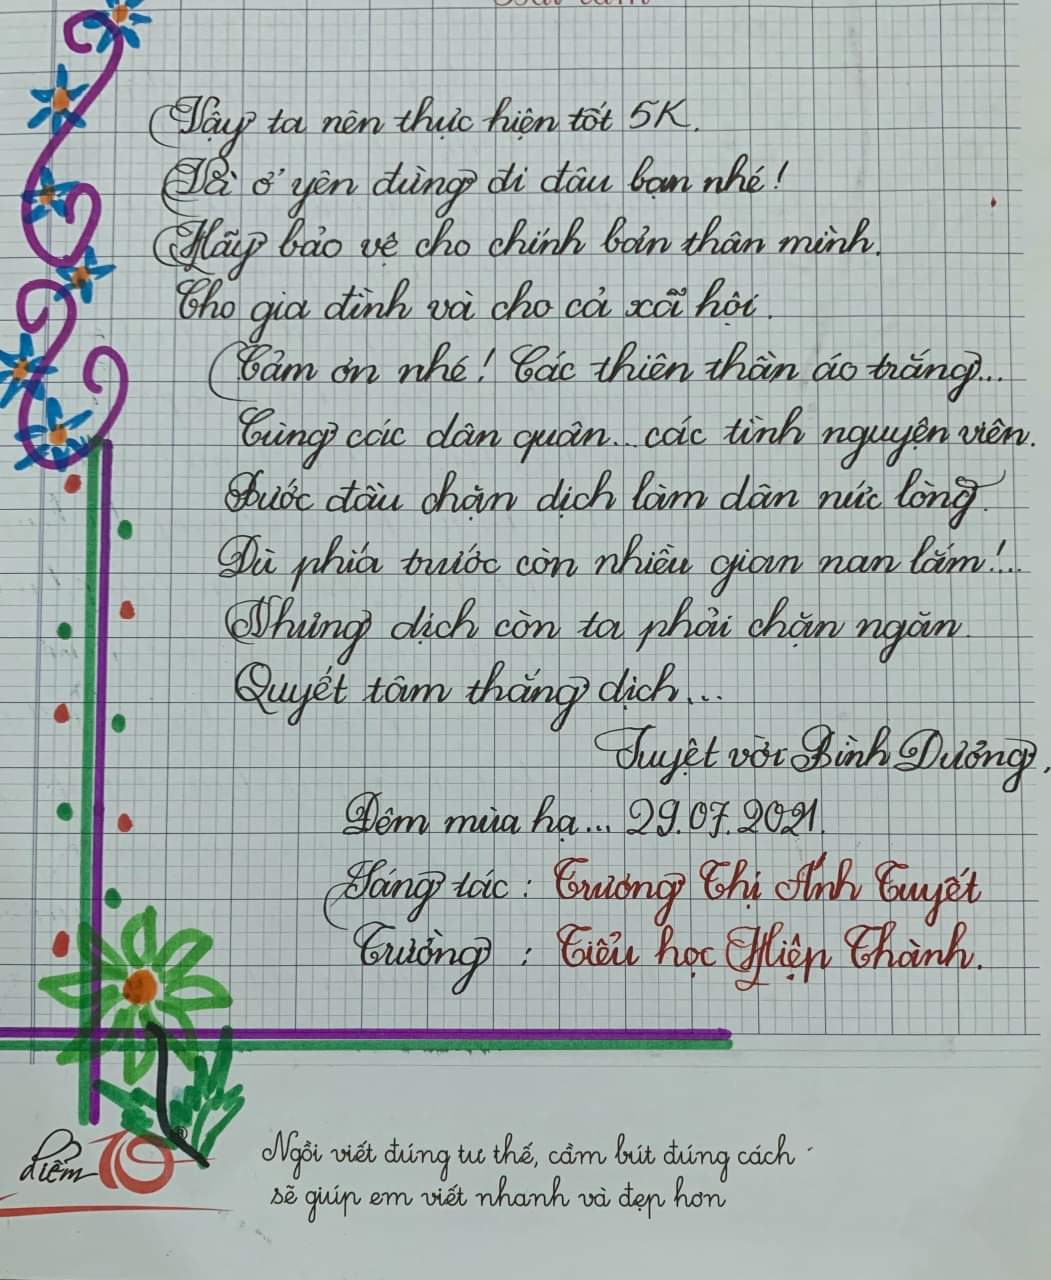 Vậy ta nên thực hiện tốt 5K.
Và ở yên đừng đi đâu bạn nhé!
Hãy bảo vệ cho chính bản thân mình.
Cho gia đình và cho cả xã hội.
Cảm ơn nhé! Các thiên thần áo trắng...
Cùng các dân quân... các tình nguyện viên.
Bước đầu chặn dịch làm dân nức lòng.
Dù phía trước còn nhiều gian nan lắm!...
Nhưng dịch còn ta phải chặn ngăn
Quyết tâm thắng dịch...
Tuyệt vời Bình Dương,
Đêm mùa hạ... 29.07.2021.
Sáng tác : Trương Thị Ánh Tuyết
Trường : Tiểu học Hiệp Thành.
Điểm 10
Ngồi viết đúng tư thế, cầm bút đúng cách
sẽ giúp em viết nhanh và đẹp hơn